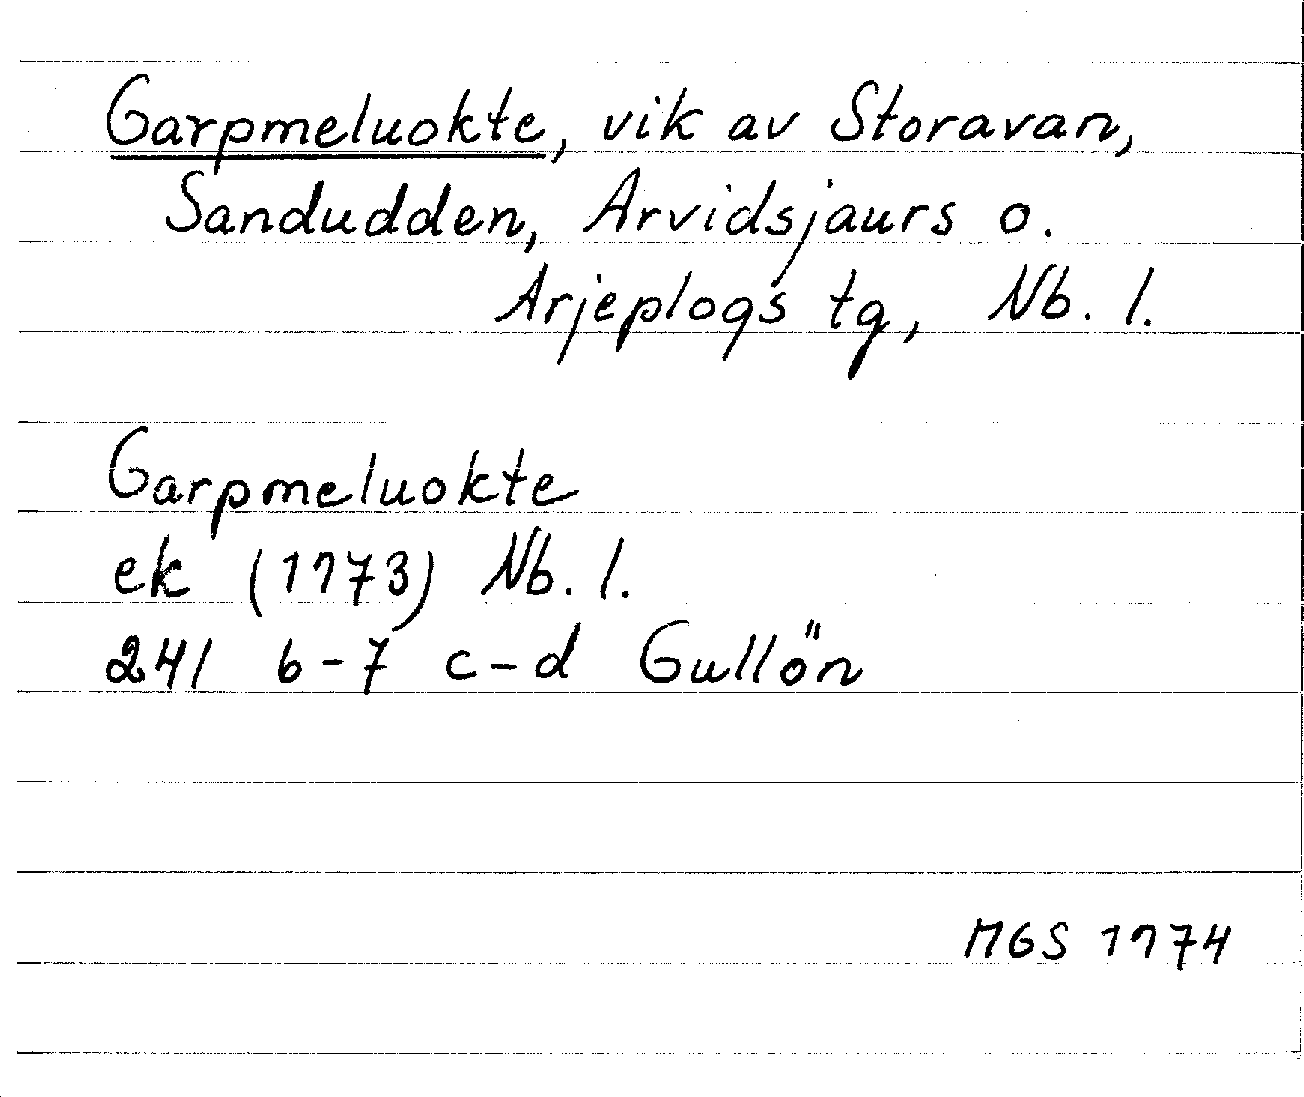 Garpmeluokte, vik av Storavan,
Sandudden, Arvidsjaurs o.
Arjeplogs tg, Nb. l.
Garpmeluokte
ek (1973) Nb. l.
24I 6-7 c-d Gullön
MGS 1974